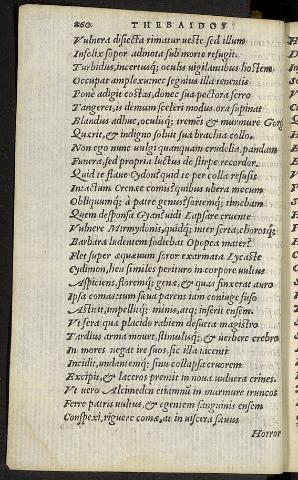 260 THEBAIDOS
Vulnera disiecta rimatur ueste sed illum
Infelix sopor admota sub morte refugit.
Turbidus, incertusq; oculis uigilantibus hostem
Occupat amplexu: nec segnius illa tenentis
Ponè adigit costas, donec sua pectora ferro
Tangeret, is demum sceleri modus. ora supinat
Blandus adhuc, oculisq; tremẽs & murmure Gorg
Quærit, & indigno soluit sua brachia collo.
Non ego nunc uulgi quamquam crudelia, pandam
Funera, sed propria luctus de stirpe recordor.
Quid te flaue Cydon? quid te per colla refusis
Intactum Crenæe comis? quibus ubera mecum
Obliquumq; à patre genus? fortemq; timebam
Quem desponsa Gyan? uidi lapsare cruente
Vulnere Mirmydonis, quidq; inter serta, chorosq;
Barbara ludentem fodiebat Opopea mater?
Flet super æquæuum soror exarmata Lycaste
Cydimon, heu similes perituro in corpore uultus
Aspiciens, floremq; genæ, & quas finxerat auro
Ipsa comas: tum sæua parens iam coniuge fuso
Astitit, impellitq; minis, atq; inserit ensem.
Vt fera quæ placido rabiem desueta magistro
Tardius arma mouet, stimulisq; & uerbere crebro
In mores negat ire suos, sic illa iacenti
Incidit, undantemq; sinu collapsa cruorem
Excipit, & laceros premit in noua uulnera crines.
Vt uero Alcimeden etiamnũ in murmure truncos
Ferre patris uultus, & egentem sanguinis ensem
Conspexi, riguere comæ, at in uiscera sæuus
Horror